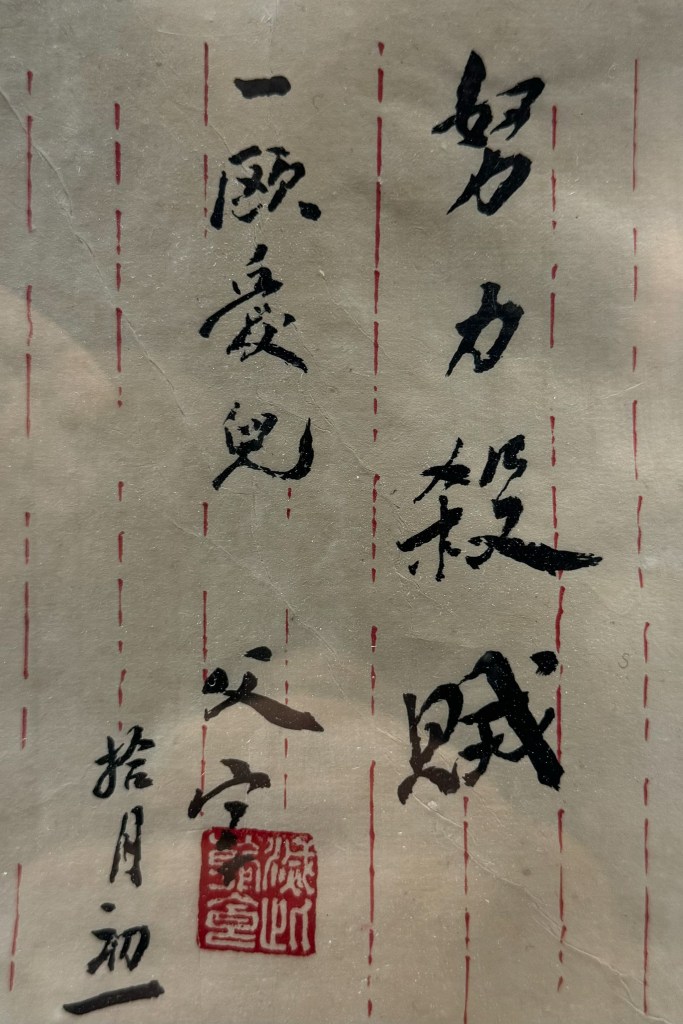 努力殺賊
一歐愛兒 父字
拾月初一